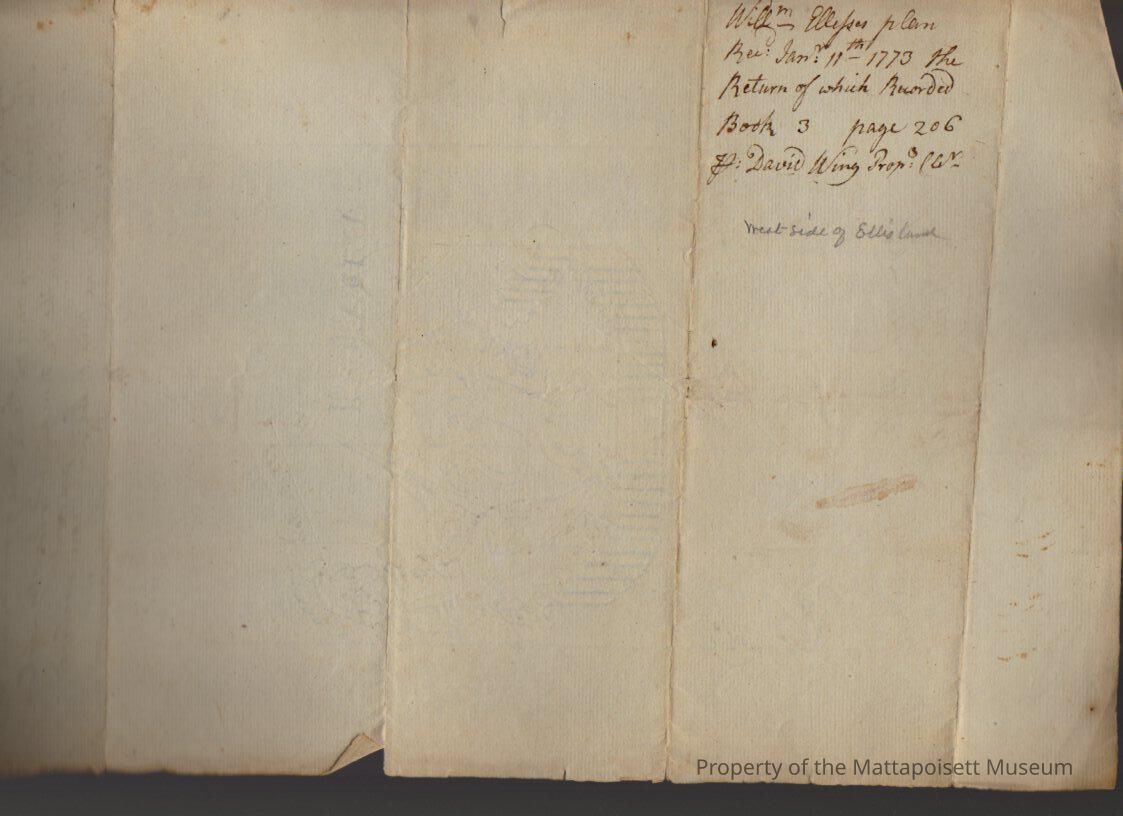 Willm Ellesses plan
Rec: Janr: 11th 1773 the
Return of which Recorded
Book 3 page 206
P: David Wing Props: Clr
West side of Ellis land
Property of the Mattapoisett Museum